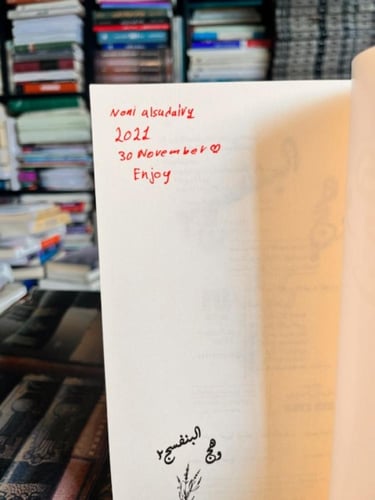 Noni alsudairy
2021
30 November
Enjoy
وهج البنفسج ٢